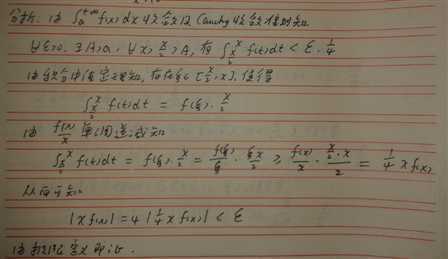 分析: 由 ∫_a^{+∞} f(x)dx 收敛及 Cauchy 收敛准则知
∀ε>0, ∃A>a, ∀x > x/2 > A, 有 ∫_{x/2}^x f(t)dt < ε·1/4
由积分中值定理知, 存在ξ∈[x/2, x], 使得
∫_{x/2}^x f(t)dt = f(ξ)·x/2
由 f(x)/x 单调递减知
∫_{x/2}^x f(t)dt = f(ξ)·x/2 = f(ξ)/ξ · ξx/2 ≥ f(x)/x · (x/2·x)/2 = 1/4 x f(x)
从而可知
|xf(x)| = 4|1/4 x f(x)| < ε
由极限定义即证.